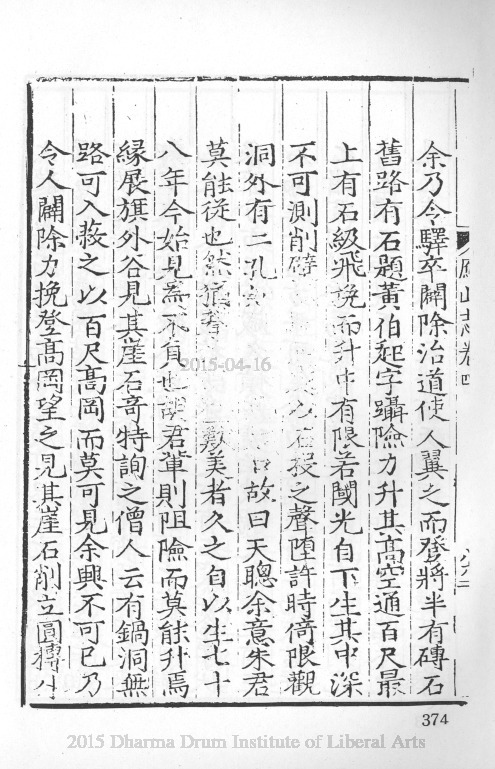 余乃令驛卒闢除治道使人翼之而登將半有磚石
舊路有石題黃伯起字躡險力升其高空通百尺最
上有石級飛挽而升中有限若閾光自下生其中深
不可測削以石投之聲墮許時倚限觀
洞外有二孔故曰天聰余意朱君
莫能從也然美者久之自以生七十
八年今始見焉不負也胡君輩則阻險而莫能升焉
緣展旗外谷見其崖石奇特詢之僧人云有鍋洞無
路可入薮之以百尺高岡而莫可見余興不可已乃
令人闢除力挽登高岡望之見其崖石削立圓
山志卷四
374
2015-04-16
2015 Dharma Drum Institute of Liberal Arts